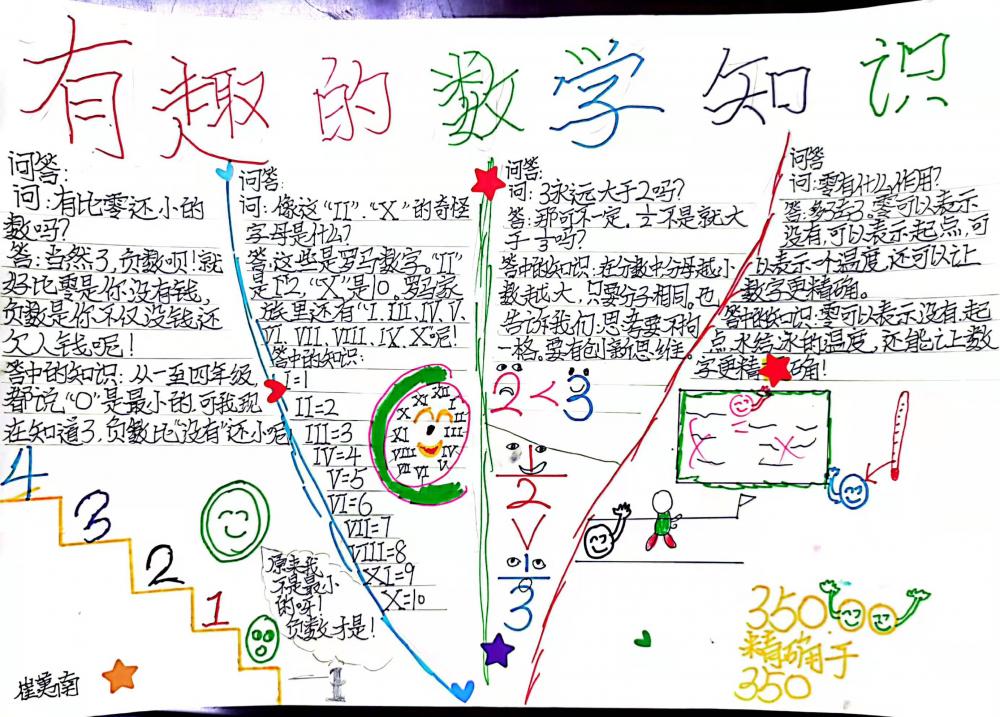 有趣的数学知识
问答:
问:有比零还小的
数吗?
答:当然了,负数呗!就
好比零是你没有钱,
负数是你不仅没钱还
欠人钱呢!
答中的知识:从一至四年级,
都说"0"是最小的,可我现
在知道了,负数比"没有"还小呢
4
3
2
1
原来我
不是最小
的呀!
负数才是!
-1
崔萁南
问答:
问:像这"II"."X"的奇怪
字母是什么?
答:这些是罗马数字。"II"
是12."X"是10。罗马家
族里还有"I.III.IV.V.
VI.VII.VIII.IX.X"呢!
答中的知识:
I=1
II=2
III=3
IV=4
V=5
VI=6
VII=7
VIII=8
XI=9
X=10
XII
I
II
III
IV
V
VI
VII
VIII
XI
X
XI
问答:
问:3永远大于2吗?
答:那可不一定。1/2不是就大
于1/3吗?
答中的知识:在分数中分母越小
数越大,只要分子相同。也
告诉我们:思考要不拘
一格。要有创新思维。
2<3
1
2
>
1
3
问答
问:零有什么作用?
答:多了去了。零可以表示
没有,可以表示起点,可
以表示一个温度,还可以让
数字更精确。
答中的知识:零可以表示没有,起
点,水结冰的温度,还能让数
字更精确!
350
精确用于
350